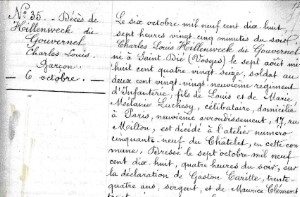 No 35. Décès de
Hollenweck de
Gouvernel
Charles Louis.
Garçon.
6 octobre.
Le six octobre mil neuf cent dix huit
sept heures vingt cinq minutes du soir
Charles Louis Hollenweck de Gouvernel
né à Saint Dié (Vosges) le sept août mil
huit cent quatre vingt seize, soldat au
deux cent vingt neuvième régiment
d'Infanterie, fils de Louis et de Marie
Mélanie Luchesy, célibataire, domicilié
à Paris, neuvième arrondissement, 17, rue
Milton, est décédé à l'atelier numéro
cinquante neuf du Châtelet, en cette com
mune. Dressé le sept octobre mil neuf
cent dix huit, quatre heures du soir, sur
la déclaration de Gaston trente
quatre ans, sergent, et de Maurice Clément